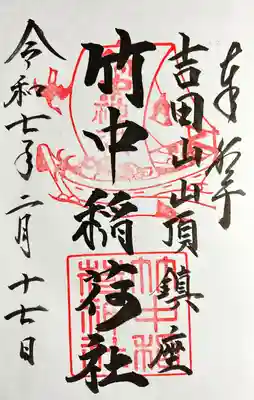 奉拝
吉田山山頂鎮座
竹中稲荷社
令和七年二月十七日
竹中稲荷社